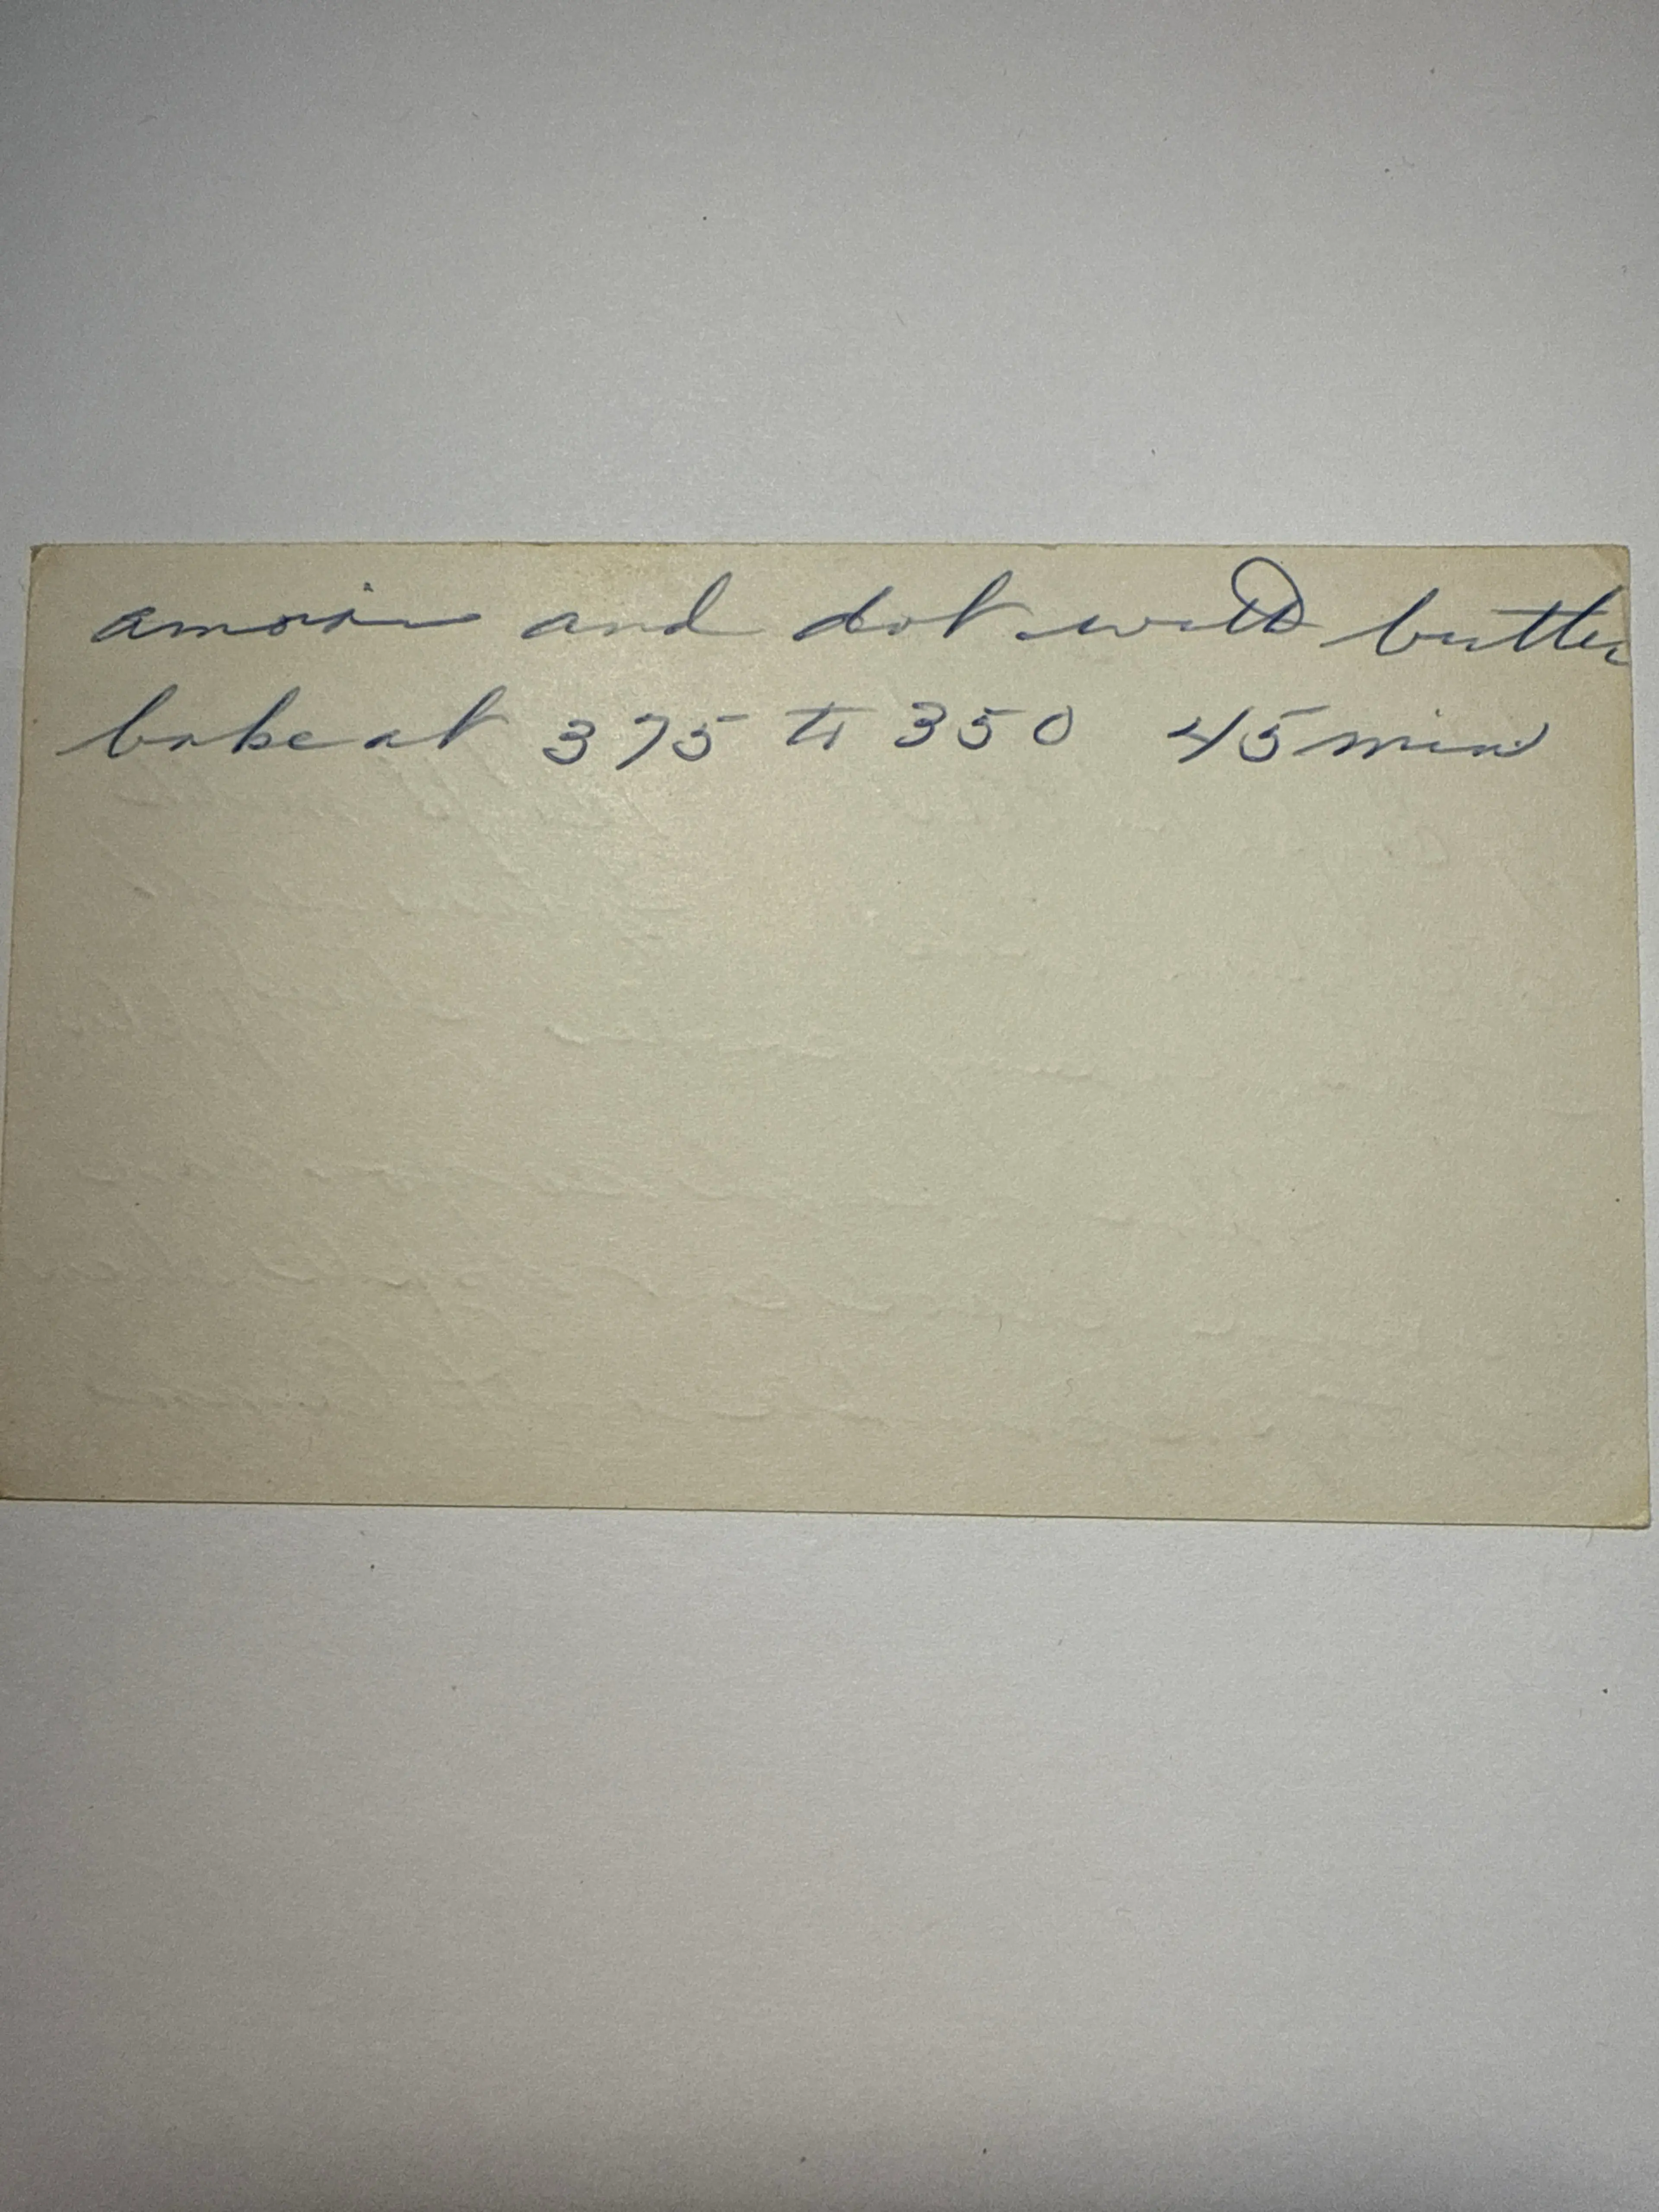 and dot with butter
bake at 375 to 350 45 min